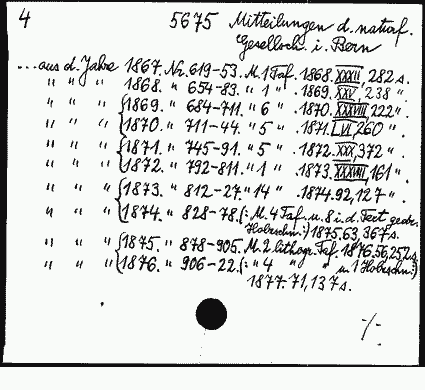 4 5675 Mitteilungen d. naturf.
Gesellsch. i. Bern
...aus d. Jahre 1867. Nr. 619-53. M. 1 Taf. 1868. XXXII, 282 s.
" " " 1868. " 654-83. " 1 " . 1869. XXV, 238 " .
" " " 1869. " 684-711. " 6 " . 1870. XXXVIII, 222 " .
" " " 1870. " 711-44. " 5 " . 1871. LVI, 260 " .
" " " 1871. " 745-91. " 5 " . 1872. XXX, 372 " .
" " " 1872. " 792-811. " 1 " . 1873. XXXVIII, 161 " .
" " " 1873. " 812-27. " 14 " . 1874. 92, 127 " .
" " " 1874. " 828-78. (: M. 4 Taf. u. 8 i. d. Text gedr.
Holzschn. :) 1875. 63, 367 s.
" " " 1875. " 878-905. M. 2 lithogr. Taf. 1876. 56, 252 s.
" " " 1876. " 906-22. (: " 4 " " u. 1 Holzschn. :)
1877. 71, 137 s.
-/-